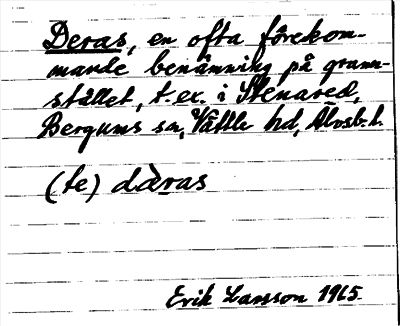 Deras, en ofta förekom-
mande benämning på grann-
stället, t. ex. i Stenared,
Bergums sn, Vättle hd, Älvsb. l.
(te) dàras
Erik Larsson 1915.